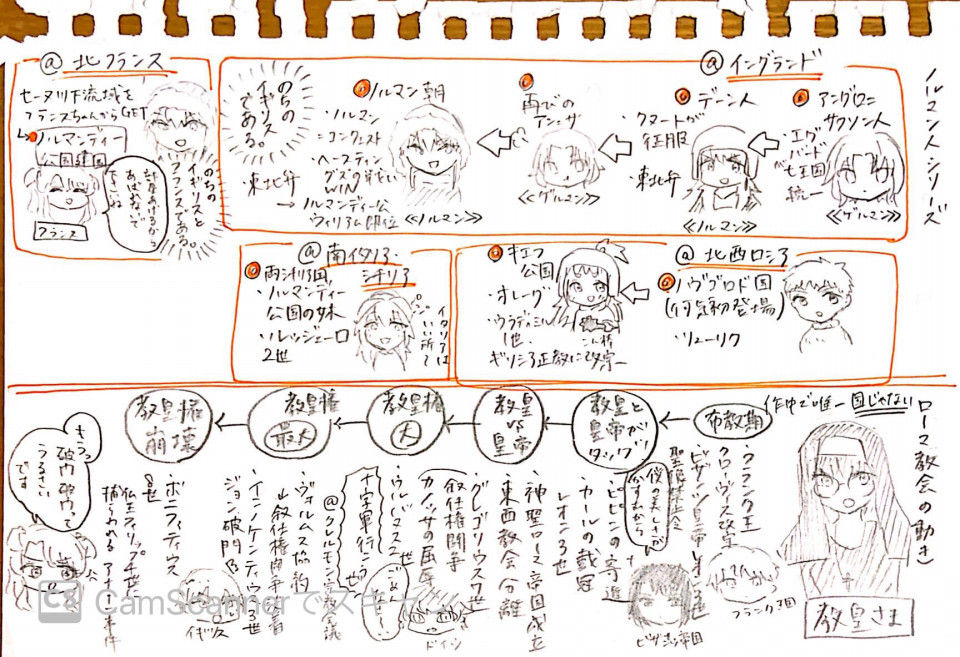 ノルマン人シリーズ
@イングランド
アングロ=
サクソン人
・エグ
バードが
七王国
統一
≪ゲルマン≫
デーン人
・クヌートが
征服
・東北弁
≪ノルマン≫
再びの
アンサ
≪ゲルマン≫
ノルマン朝
・ノルマン
=コンクェスト
・ヘースティン
グズの戦い
WIN
→ノルマンディー公
ウィリアム即位
・東北弁
≪ノルマン≫
のちの
イギリス
である。
@北フランス
セーヌ川下流域を
フランスちゃんからGET
ノルマンディー
公国建国
のちの
イギリスと
フランスである。
土地あげるから
あばれないで
下さいね
フランス
@北西ロシア
ノヴゴロド国
(何気初登場)
・リューリク
キエフ
公国
・オレーグ
・ウラディミル
1世
ギリシア正教に改宗
@南イタリア・
シチリア
両シチリア王国
・ノルマンディー
公国の妹
・ルッジェーロ
2世
イタリアは
いい所で
ローマ教会の動き
作中で唯一国じゃない
教皇さま
布教期
教皇と
皇帝が
タッグ!
教皇
VS
皇帝
教皇権
大
教皇権
最大
教皇権
崩壊
・フランク王
クローヴィス改宗
・ビザンツ皇帝レオン3世
聖像禁止令
フランク王国
ビザンツ帝国
・ピピンの寄進
・カールの戴冠
レオン3世
・神聖ローマ帝国成立
・東西教会分離
・グレゴリウス7世
叙任権闘争
カノッサの屈辱
ドイツ
・ウルバヌス2世
十字軍行こうぜ!!
@クレルモン宗教会議
・ヴォルムス協約
↓叙任権闘争決着
・インノケンティウス3世
ジョン破門
イギリス
・ボニファティウス
8世
仏王フィリップ4世に
捕らわれる アナーニ事件
もうっ
破門破門って
うるさい
です
CS CamScannerでスキャン